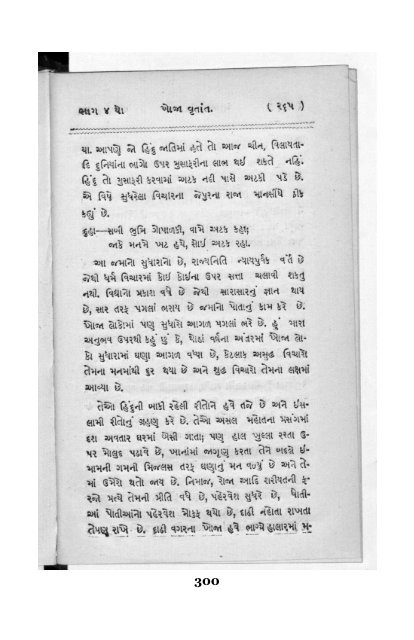 ભાગ ૪ થો ખોજા વૃતાંત. ( ૨૬૫ )
થા. આપણે જો હિંદુ જાતિમાં હતે તો આજ ચીન, વિલાયતા-
દિ દુનિયાંના ભાગો ઉપર મુસાફરીના લાભ થઈ શકતે નહિં.
હિંદુ તો મુસાફરી કરવામાં અટક નદી પાસે અટકી પડે છે.
એ વિષે સુધરેલા વિચારના જેપુરના રાજા માનસીંઘે ઠીક
કહ્યું છે.
દુહા—સબી ભુમિ ગોપાળકી, વામેં અટક કહા;
જાકે મનમેં ખટ હયે, સોઈ અટક રહા.
આ જમાનો સુધારાનો છે, રાજ્યનિતિ ન્યાયપુર્વક વર્તે છે
જેથી ધર્મ વિચારમાં કોઈ કોઈના ઉપર સત્તા ચલાવી શકતું
નથી. વિદ્યાનો પ્રકાશ વધે છે જેથી સારાસારનું જ્ઞાન થાય
છે, સાર તરફ પગલાં ભરાય છે જમાનો પોતાનું કામ કરે છે.
ખોજા લોકોમાં પણ સુધારો આગળ પગલાં ભરે છે. હું મારા
અનુભવ ઉપરથી કહું છું કે, થોડાં વર્ષના અંતરમાં ખોજા લો-
કો સુધારામાં ઘણા આગળ વધ્યા છે, કેટલાક અશુદ્ધ વિચારો
તેમના મનમાંથી દુર થયા છે અને શુદ્ધ વિચારો તેમના લક્ષમાં
આવ્યા છે.
તેઓ હિંદુની બાકી રહેલી રીતોને હવે તજે છે અને ઇસ-
લામી રીતોનું ગ્રહણ કરે છે. તેઓ અસલ મહોતના પ્રસંગમાં
દશ અવતાર ઘરમાં બેસી ગાતા; પણ હાલ ખુલ્લા રસ્તા ઉ-
પર મોલુદ પઢાવે છે, ખાનાંમાં જાગૃણ કરતા તેને બદલે ઈ-
મામની ગમની મિજલસ તરફ ઘણાનું મન વળ્યું છે અને તે-
માં ઉમેરો થતો જાય છે. નિમાજ, રોજા આદિ શરીયતની ફ-
રજો પ્રત્યે તેમની પ્રીતિ વધે છે, પહેરવેશ સુધરે છે, ધોતી-
આં પોતીઆંનો પહેરવેશ મોકુફ થયો છે, દાઢી નહોતા રાખતા
તેપણ રાખે છે. દાઢી વગરના ખોજા હવે ભાગ્યે હાલારમાં મ-
300